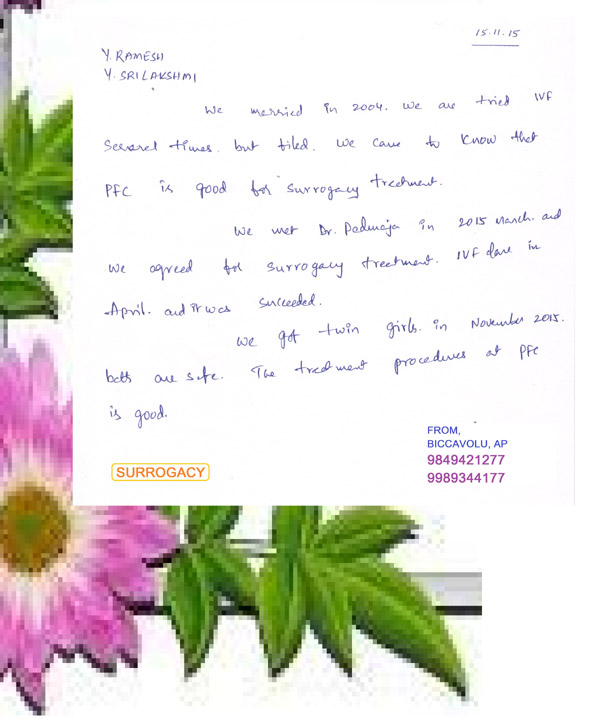 15.11.15
Y. RAMESH
Y. SRILAKSHMI
We married in 2004. We are tried IVF
Several times. but filed. We came to know that
PFC is good for surrogacy treetment.
We met Dr. Padmaja in 2015 March. and
we agreed for surrogacy treetment. IVF done in
April. and it was succeeded.
We got twin girls. in November 2015.
both are safe. The treetment procedures at PFC
is good.
FROM,
BICCAVOLU, AP
9849421277
9989344177
SURROGACY